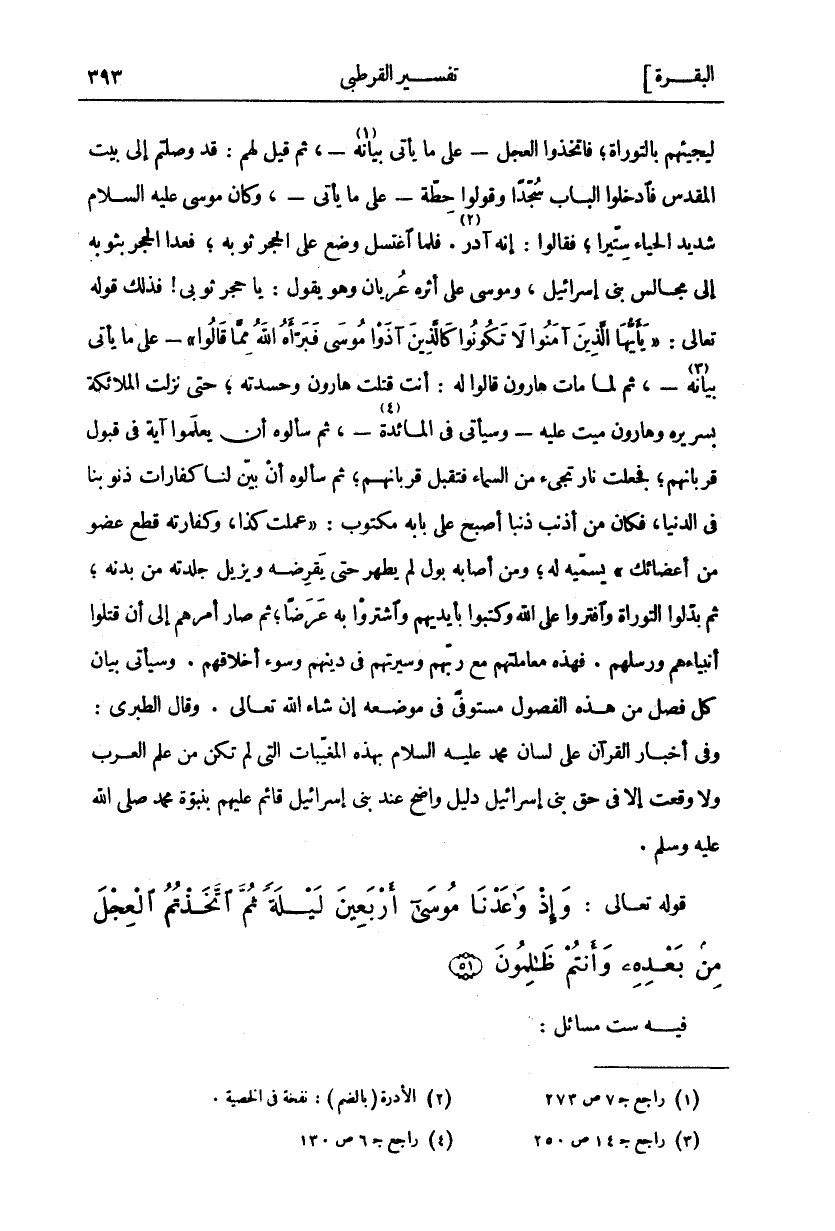 البقرة] تفسير القرطبي ٣٩٣
ليجيئهم بالتوراة؛ فاتخذوا العجل — على ما يأتى بيانه(١) — ، ثم قيل لهم : قد وصلتم إلى بيت
المقدس فٱدخلوا الباب سُجّدًا وقولوا حِطّة — على ما يأتى — ، وكان موسى عليه السلام
شديد الحياء سِتّيرا ؛ فقالوا : إنه آدر(٢) . فلما ٱغتسل وضع على الحجر ثوبه ؛ فعدا الحجر بثوبه
إلى مجالس بنى إسرائيل ، وموسى على أثره عُريان وهو يقول : يا حجر ثوبى! فذلك قوله
تعالى : « يَأَيُّهَا الَّذِينَ آمَنُوا لَا تَكُونُوا كَالَّذِينَ آذَوْا مُوسَى فَبَرَّأَهُ اللَّهُ مِمَّا قَالُوا» — على ما يأتى
بيانه(٣) — ، ثم لما مات هارون قالوا له : أنت قتلت هارون وحسدته ؛ حتى نزلت الملائكة
بسريره وهارون ميت عليه — وسيأتى فى المائدة(٤) — ، ثم سألوه أن يعلَموا آية فى قبول
قربانهم؛ فجعلت نار تجىء من السماء فتقبل قربانهم؛ ثم سألوه أنْ بيّن لنا كفارات ذنوبنا
فى الدنيا، فكان من أذنب ذنبا أصبح على بابه مكتوب : «عملت كذا، وكفارته قطع عضو
من أعضائك » يسمّيه له؛ ومن أصابه بول لم يطهر حتى يَقرِضه ويزيل جلدته من بدنه ؛
ثم بدّلوا التوراة وٱفتروا على الله وكتبوا بأيديهم وٱشتروْا به عَرَضًا؛ ثم صار أمرهم إلى أن قتلوا
أنبياءهم ورسلهم . فهذه معاملتهم مع ربّهم وسيرتهم فى دينهم وسوء أخلاقهم . وسيأتى بيان
كل فصل من هذه الفصول مستوفًى فى موضعه إن شاء الله تعالى . وقال الطبرى :
وفى أخبار القرآن على لسان محمد عليه السلام بهذه المغيّبات التى لم تكن من علم العرب
ولا وقعت إلا فى حق بنى إسرائيل دليل واضح عند بنى إسرائيل قائم عليهم بنبوّة محمد صلى الله
عليه وسلم .
قوله تعالى : وَإِذْ وَٰعَدْنَا مُوسَىٰٓ أَرْبَعِينَ لَيْلَةً ثُمَّ ٱتَّخَذْتُمُ ٱلْعِجْلَ
مِنۢ بَعْدِهِۦ وَأَنتُمْ ظَٰلِمُونَ ٥١
فيه ست مسائل :
(١) راجع جـ ٧ ص ٢٧٣ (٢) الأدرة (بالضم) : نفخة فى الخصية .
(٣) راجع جـ ١٤ ص ٢٥٠ (٤) راجع جـ ٦ ص ١٣٠